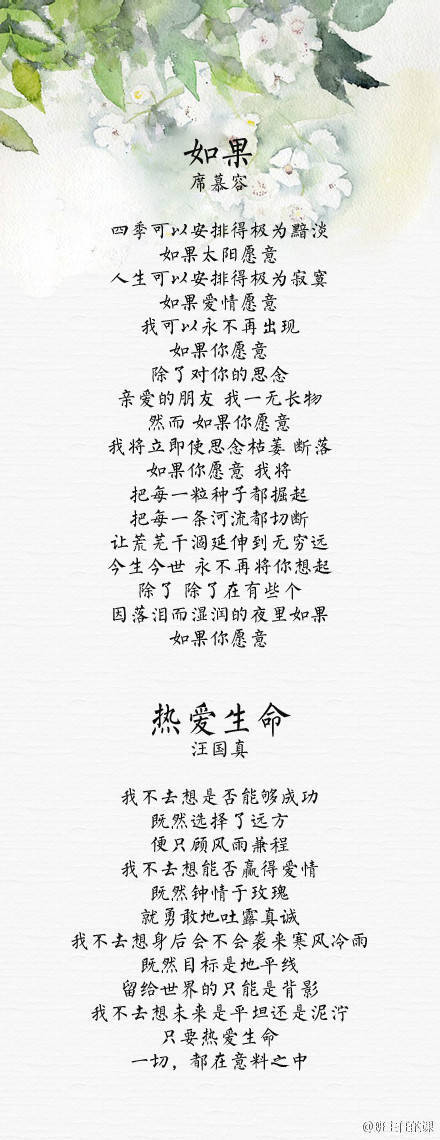 如果
席慕容
四季可以安排得极为黯淡
如果太阳愿意
人生可以安排得极为寂寞
如果爱情愿意
我可以永不再出现
如果你愿意
除了对你的思念
亲爱的朋友 我一无长物
然而 如果你愿意
我将立即使思念枯萎 断落
如果你愿意 我将
把每一粒种子都掘起
把每一条河流都切断
让荒芜干涸延伸到无穷远
今生今世 永不再将你想起
除了 除了在有些个
因落泪而湿润的夜里如果
如果你愿意
热爱生命
汪国真
我不去想是否能够成功
既然选择了远方
便只顾风雨兼程
我不去想能否赢得爱情
既然钟情于玫瑰
就勇敢地吐露真诚
我不去想身后会不会袭来寒风冷雨
既然目标是地平线
留给世界的只能是背影
我不去想未来是平坦还是泥泞
只要热爱生命
一切，都在意料之中